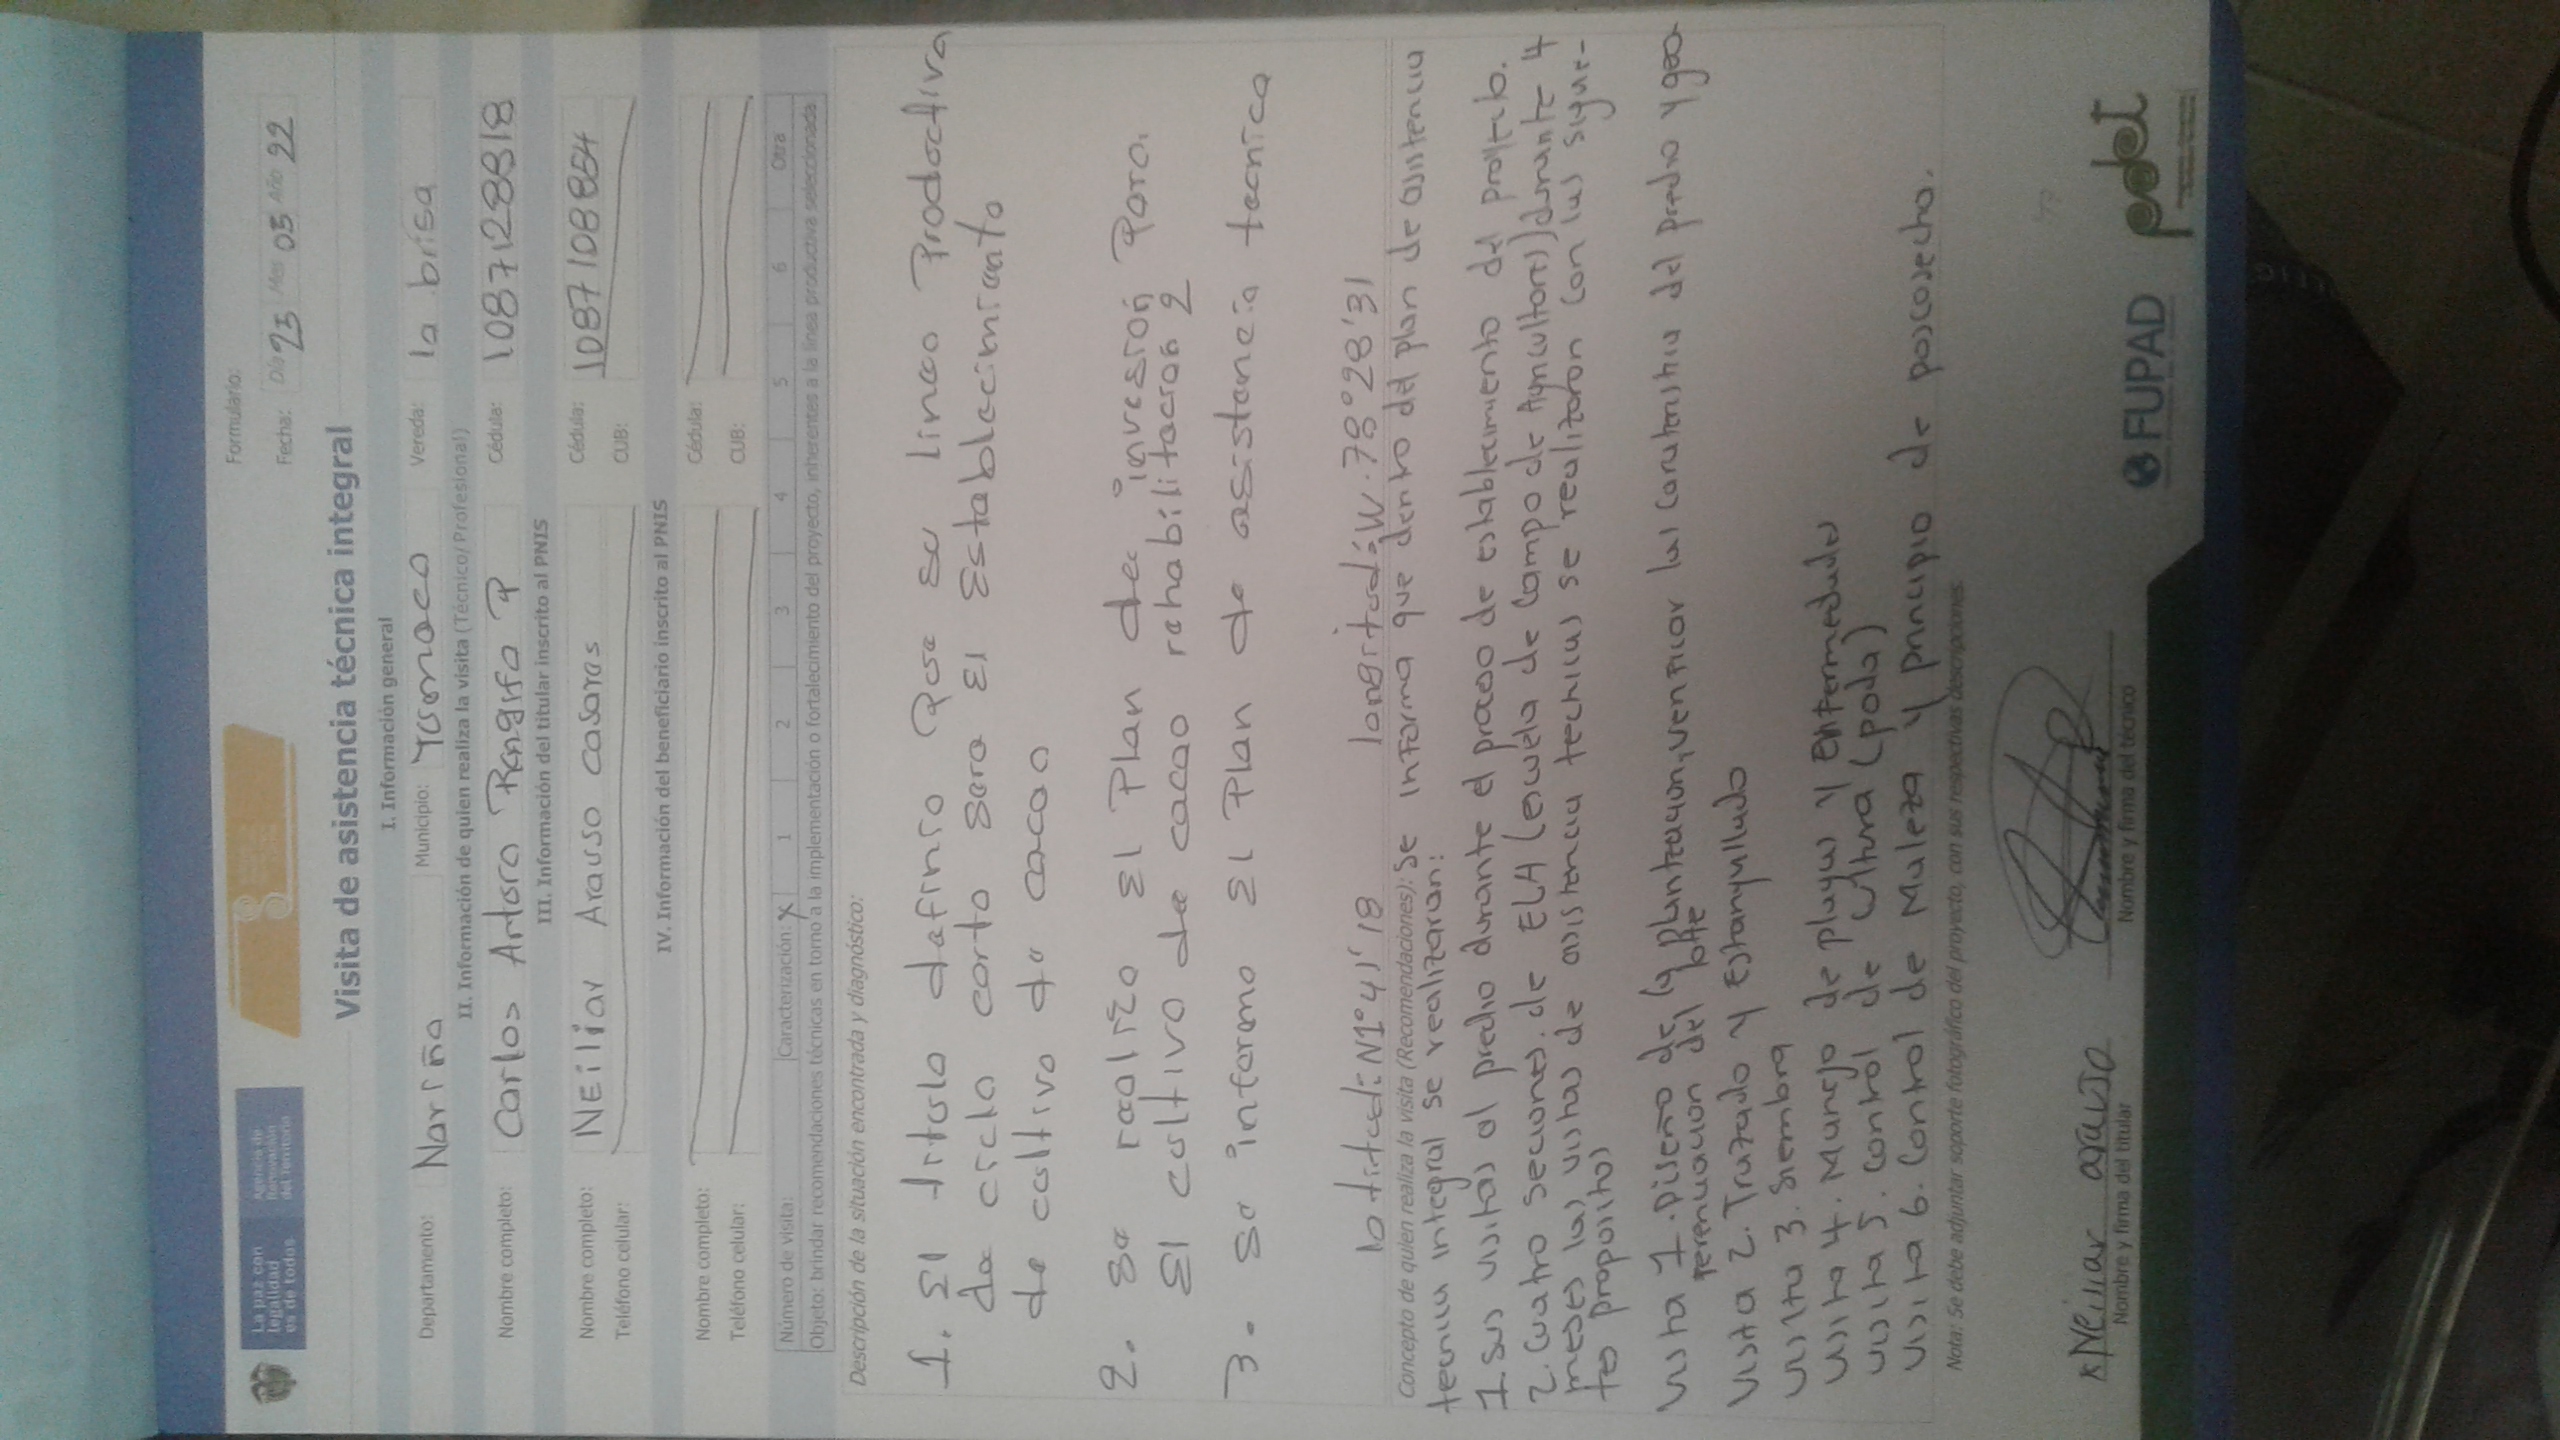 La paz con
legalidad
es de todos
Agencia de
Renovación
del Territorio
Formulario:
Fecha: Día 23 Mes 03 Año 22
Visita de asistencia técnica integral
I. Información general
Departamento: Nariño Municipio: Tumaco Vereda: la brisa
II. Información de quien realiza la visita (Técnico/ Profesional)
Nombre completo: Carlos Arturo Rengifo P Cédula: 1087128818
III. Información del titular inscrito al PNIS
Nombre completo: NEiliar Arauso casares Cédula: 1087108854
Teléfono celular: CUB:
IV. Información del beneficiario inscrito al PNIS
Nombre completo: Cédula:
Teléfono celular: CUB:
Número de visita: Caracterización: X 1 2 3 4 5 6 Otra
Objeto: brindar recomendaciones técnicas en torno a la implementación o fortalecimiento del proyecto, inherentes a la línea productiva seleccionada
Descripción de la situación encontrada y diagnóstico:
1. El titulo definio Que su linea Productiva
de ciclo corto sera El Establecimiento
de cultivo de cacao
2. se realizo El Plan de inversion Para.
El cultivo de cacao rehabilitacion 2
3. se informo El Plan de asistencia tecnica
latitud: N1°41'18 longitud: W.78°28'31
Concepto de quien realiza la visita (Recomendaciones): Se informa que dentro del plan de asistencia
tecnica integral se realizaran:
1. Sus visitas al predio durante el proceso de establecimiento del proyecto.
2. Cuatro secciones. de ELA (escuela de Campo de Agricultores) durante 4
meses las visitas de asistencia tecnicas se realizaron con las siguien-
tes propositos
visita 1. Diseño de la plantacion, verificar las caracteristica del predio y geo
referenciacion del lote
Visita 2. Trazado y Estanquillado
visita 3. siembra
visita 4. Manejo de plagas y Enfermedades
visita 5. control de cultura (poda)
visita 6. Control de Maleza y principio de poscosecha.
Nota: Se debe adjuntar soporte fotográfico del proyecto, con sus respectivas descripciones
x Neiliar arauso
Nombre y firma del titular
Nombre y firma del técnico
FUPAD
pdet